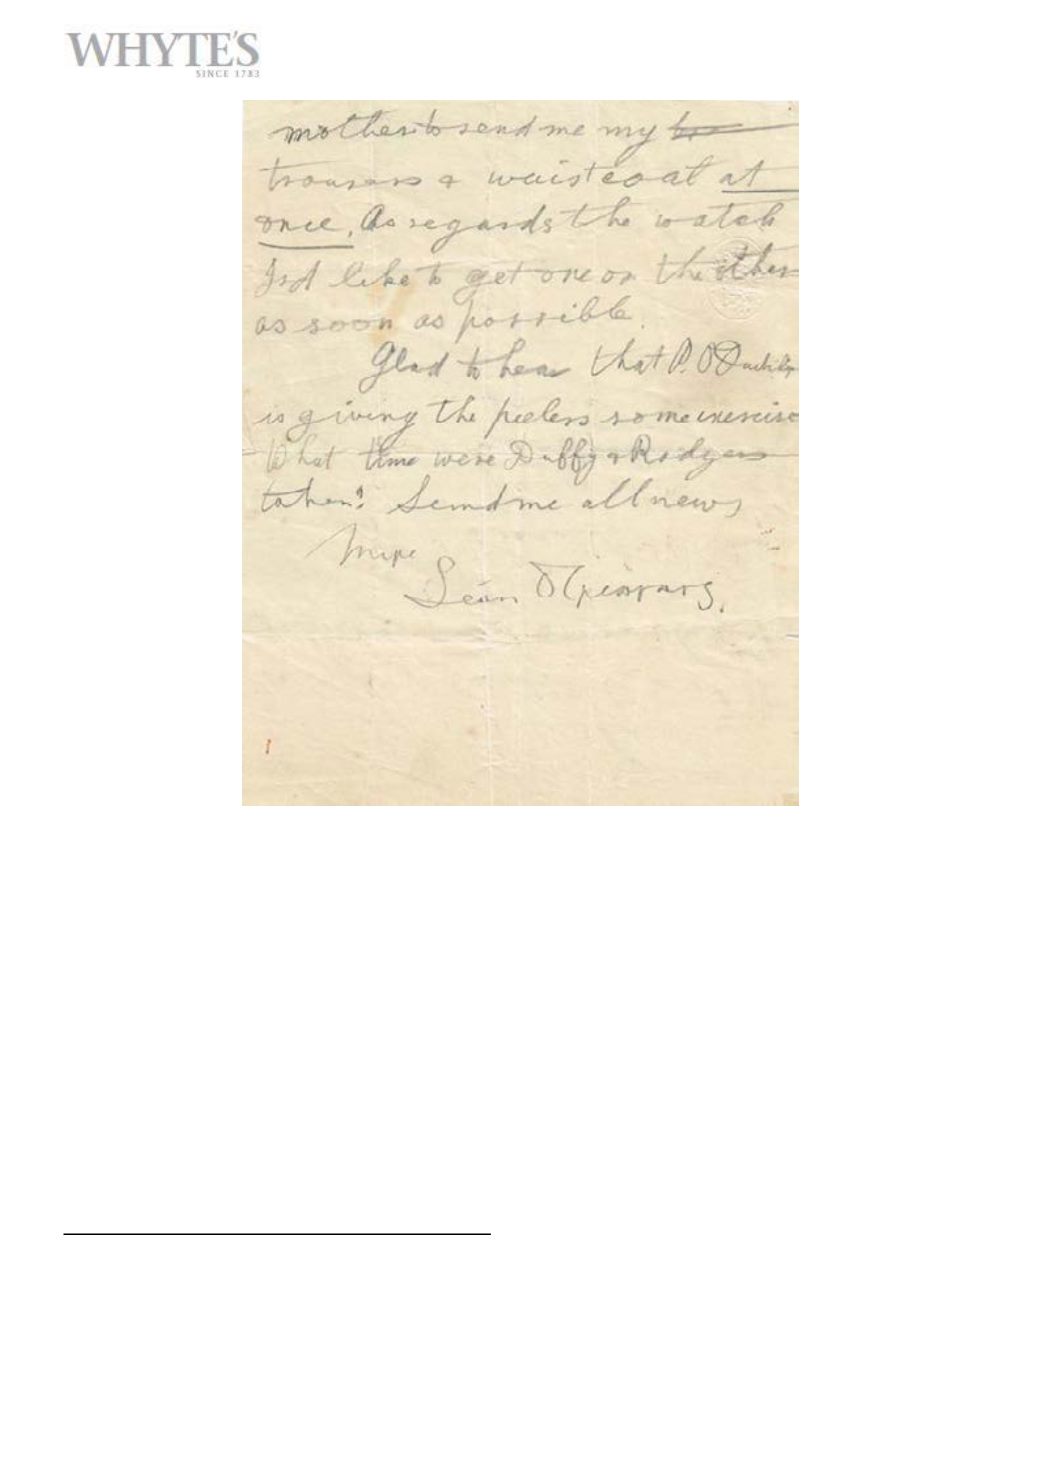 WHYTE'S
SINCE 1783
mother to send me my
trousers & waistcoat at
once. As regards the watch
I'd like to get one or the other
as soon as possible.
Glad to hear that P. O'D
is giving the peelers some exercise
What time were Duffy & Rodgers
taken? Send me all news
Mise
Seán